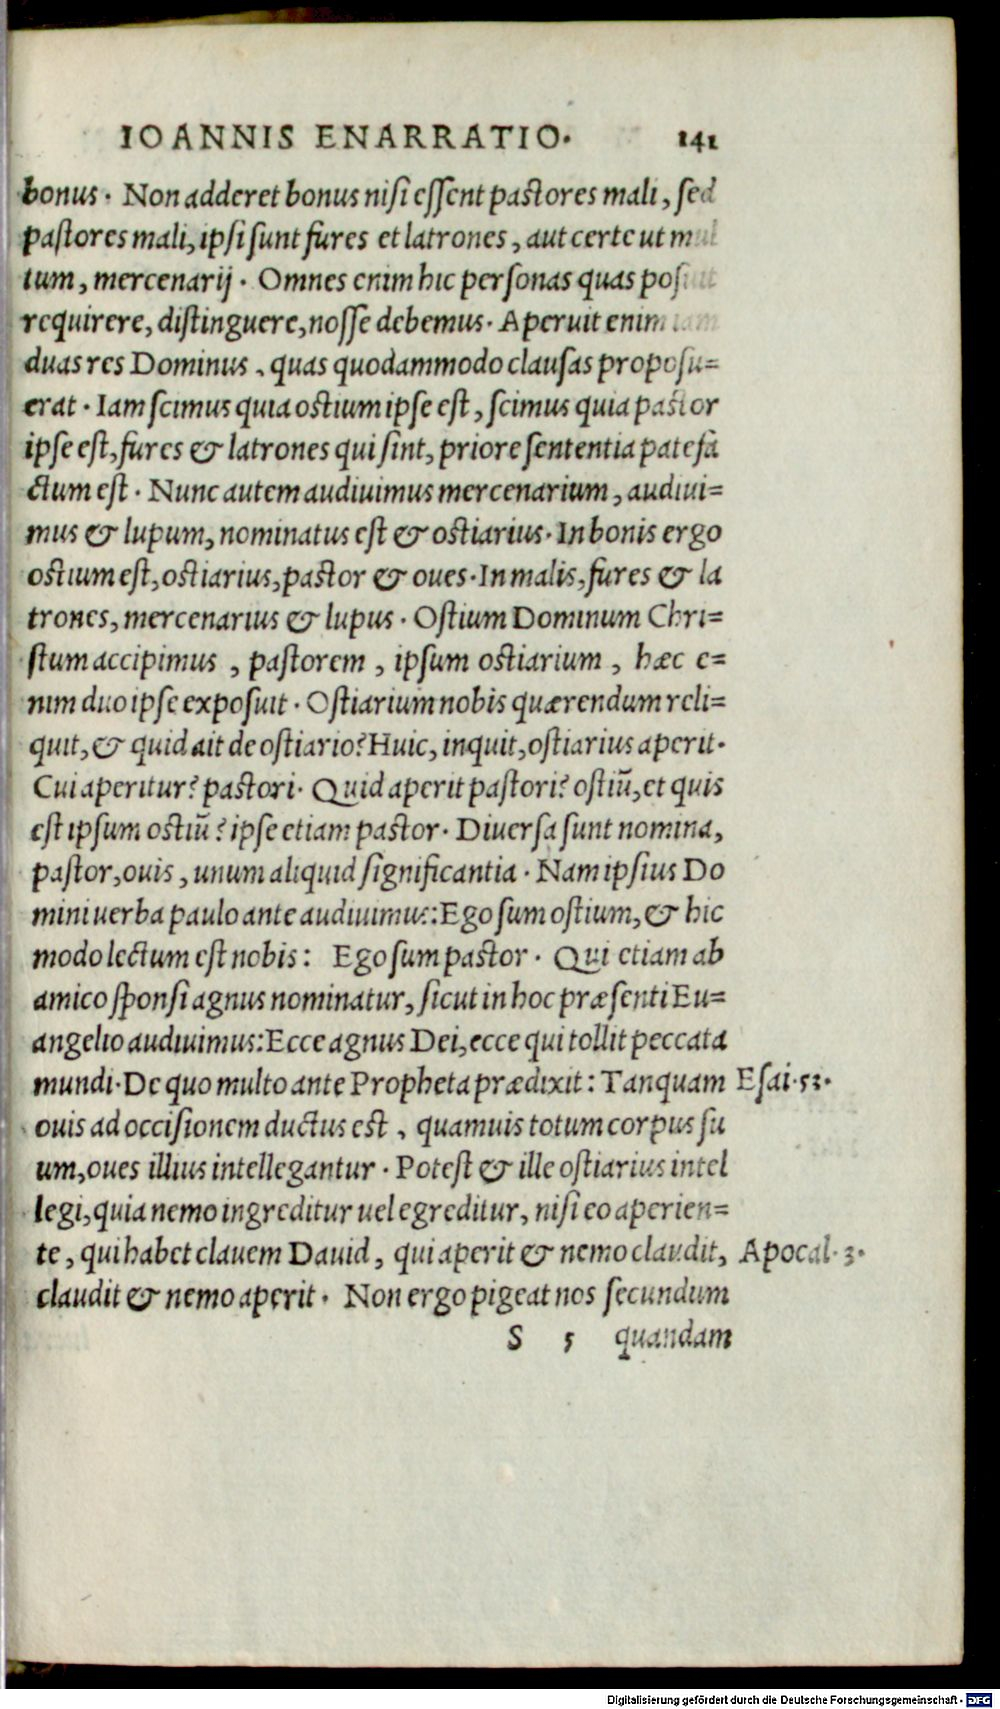 IOANNIS ENARRATIO. 141
bonus. Non adderet bonus nisi essent pastores mali, sed
pastores mali, ipsi sunt fures et latrones, aut certe ut mul
tum, mercenarij. Omnes enim hic personas quas posuit
requirere, distinguere, nosse debemus. Aperuit enim iam
duas res Dominus, quas quodammodo clausas proposu=
erat. Iam scimus quia ostium ipse est, scimus quia pastor
ipse est, fures & latrones qui sint, priore sententia patefa
ctum est. Nunc autem audiuimus mercenarium, audiui=
mus & lupum, nominatus est & ostiarius. In bonis ergo
ostium est, ostiarius, pastor & oues. In malis, fures & la
trones, mercenarius & lupus. Ostium Dominum Chri=
stum accipimus, pastorem, ipsum ostiarium, hæc e=
nim duo ipse exposuit. Ostiarium nobis quærendum reli=
quit, & quid ait de ostiario? Huic, inquit, ostiarius aperit.
Cui aperitur? pastori. Quid aperit pastori? ostiũ, et quis
est ipsum ostiũ? ipse etiam pastor. Diuersa sunt nomina,
pastor, ouis, unum aliquid significantia. Nam ipsius Do
mini uerba paulo ante audiuimus: Ego sum ostium, & hic
modo lectum est nobis: Ego sum pastor. Qui etiam ab
amico sponsi agnus nominatur, sicut in hoc præsenti Eu=
angelio audiuimus: Ecce agnus Dei, ecce qui tollit peccata
mundi. De quo multo ante Propheta prædixit: Tanquam Esai. 53.
ouis ad occisionem ductus est, quamuis totum corpus su
um, oues illius intellegantur. Potest & ille ostiarius intel
legi, quia nemo ingreditur uel egreditur, nisi eo aperien=
te, qui habet clauem Dauid, qui aperit & nemo claudit, Apocal. 3.
claudit & nemo aperit. Non ergo pigeat nos secundum
S 5 quandam
Digitalisierung gefördert durch die Deutsche Forschungsgemeinschaft - DFG